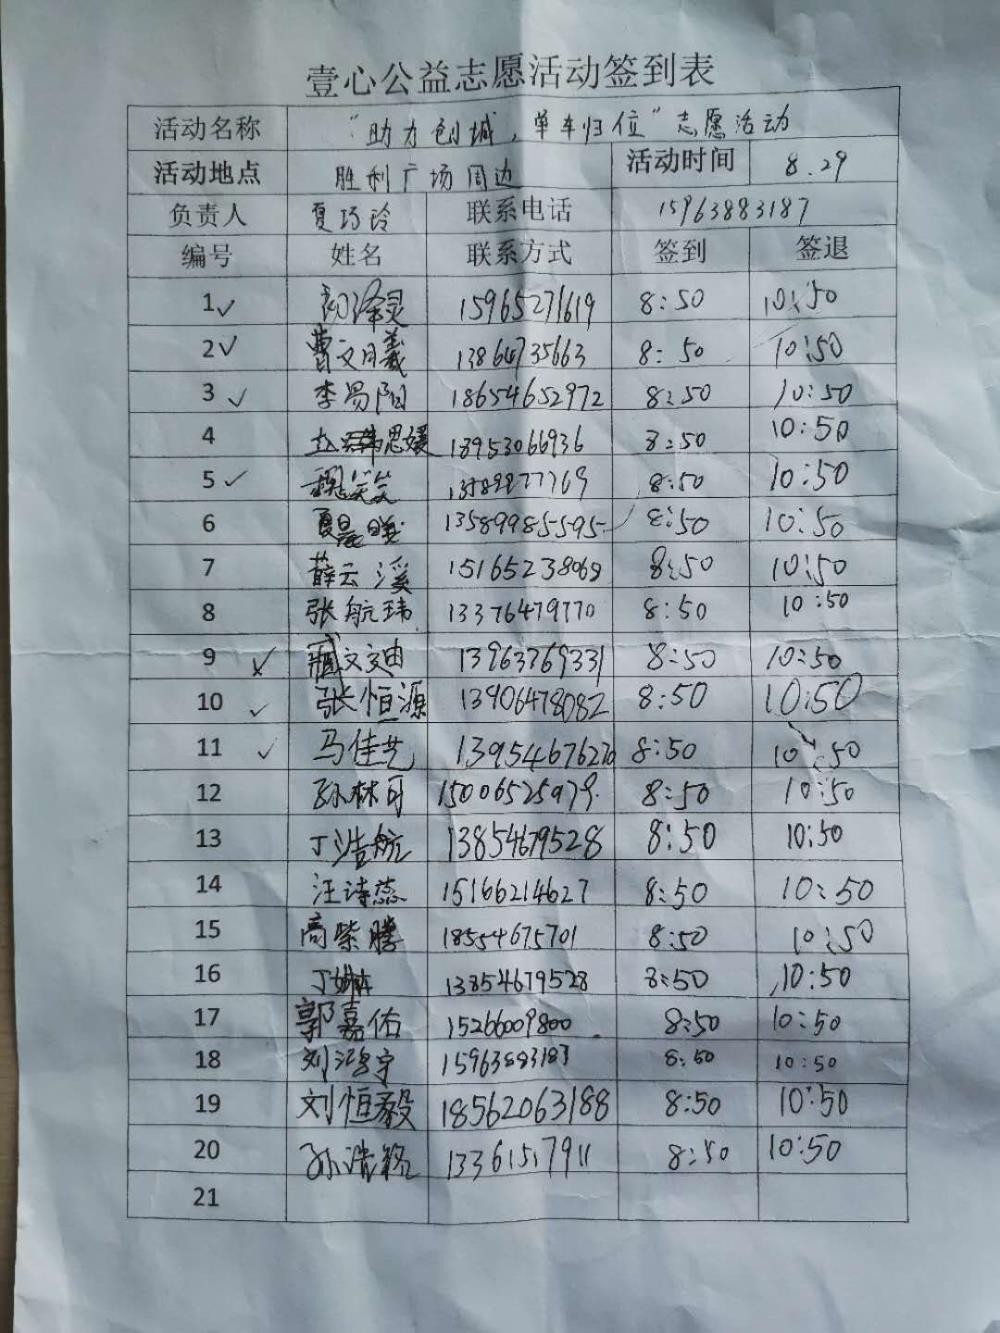 壹心公益志愿活动签到表
活动名称 "助力创城，单车归位"志愿活动
活动地点 胜利广场周边 活动时间 8.29
负责人 夏巧玲 联系电话 15963883187
编号 姓名 联系方式 签到 签退
1✓ 初泽灵 15965271619 8:50 10:50
2✓ 曹文月羲 13864735663 8:50 10:50
3✓ 李易阳 18654652972 8:50 10:50
4 18953066936 8:50 10:50
5✓ 魏笑笑 8:50 10:50
6 夏晨曦 13589985595 8:50 10:50
7 薛云溪 15165238068 8:50 10:50
8 张航玮 13376479770 8:50 10:50
9✓ 臧文迪 13963769331 8:50 10:50
10✓ 张恒源 13906478082 8:50 10:50
11✓ 马佳艺 13954676270 8:50 10:50
12 孙林可 15006525979 8:50 10:50
13 丁浩航 13854679528 8:50 10:50
14 汪诗蕊 15166214627 8:50 10:50
15 高紫腾 18554675701 8:50 10:50
16 13854679528 8:50 10:50
17 郭嘉佑 15266009800 8:50 10:50
18 刘泓宇 15963883187 8:50 10:50
19 刘恒毅 18562063188 8:50 10:50
20 孙浩铭 13361517911 8:50 10:50
21